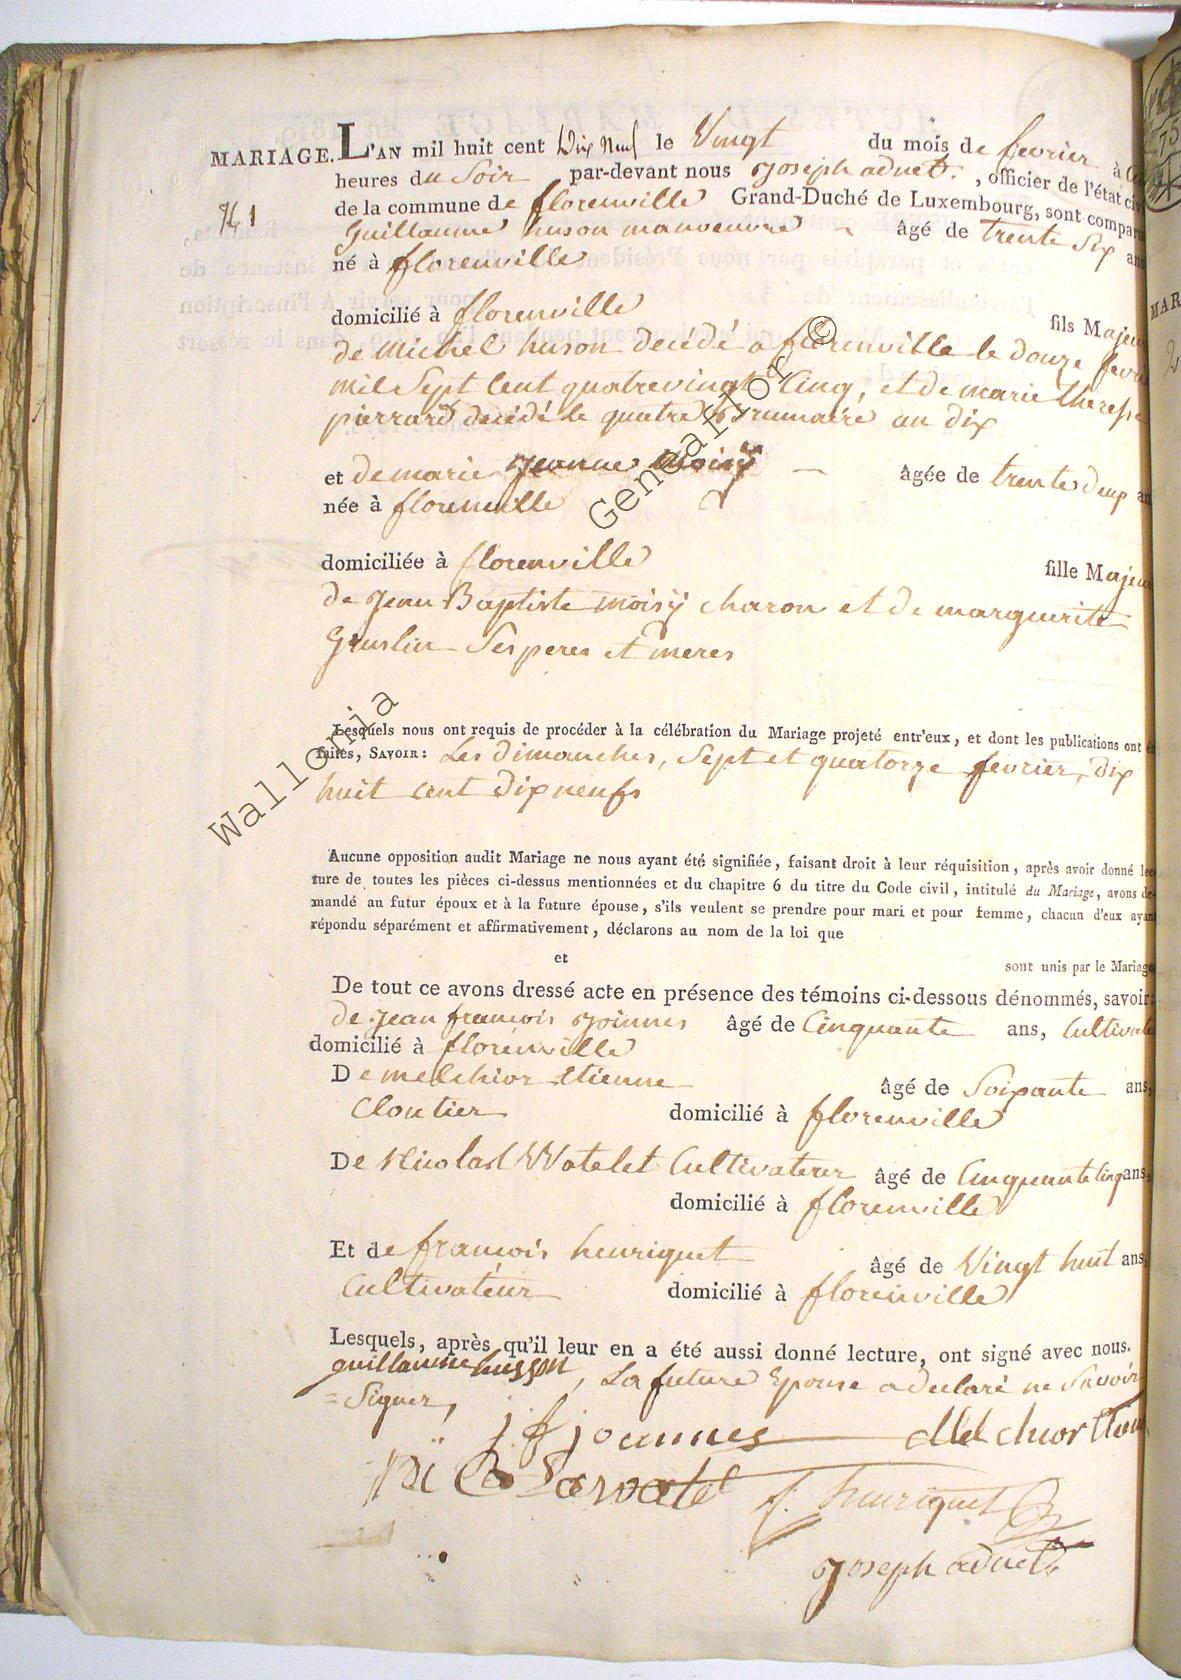 MARIAGE. L'AN mil huit cent Dix Neuf le Vingt du mois de fevrier à
heures du Soir par-devant nous joseph adnet. , officier de l'état civ
N 1
de la commune de florenville Grand-Duché de Luxembourg, sont compar
Guillaume huson manoeuvre âgé de trente Six ans
né à florenville
domicilié à florenville fils Majeur
de Michel huson decédé a florenville le douze fevri
mil Sept Cent quatrevingt Cinq, et de marie therese
pierrard decédé le quatre Brumaire an dix
et de marie jeanne moisÿ âgée de trente deux an
née à florenville
domiciliée à florenville fille Majeu
de jean Baptiste moisÿ charon et de marguerite
Ses peres et meres
Lesquels nous ont requis de procéder à la célébration du Mariage projeté entr'eux, et dont les publications ont é
faites, SAVOIR: Les dimanches, Sept et quatorze fevrier, dix
huit cent dix neufs
Aucune opposition audit Mariage ne nous ayant été signifiée, faisant droit à leur réquisition, après avoir donné lec-
ture de toutes les pièces ci-dessus mentionnées et du chapitre 6 du titre du Code civil, intitulé du Mariage, avons de-
mandé au futur époux et à la future épouse, s'ils veulent se prendre pour mari et pour femme, chacun d'eux ayant
répondu séparément et affirmativement, déclarons au nom de la loi que
et sont unis par le Mariage
De tout ce avons dressé acte en présence des témoins ci-dessous dénommés, savoir:
de jean francois joinnes âgé de Cinquante ans, Cultivat
domicilié à florenville
De melchior etienne âgé de Soixante ans,
Cloutier domicilié à florenville
De Nicolas Watelet Cultivateur âgé de Cinquante Cinq ans,
domicilié à florenville
Et de francois henriquet âgé de Vingt huit ans,
Cultivateur domicilié à florenville
Lesquels, après qu'il leur en a été aussi donné lecture, ont signé avec nous.
guillaume husson, La future Epouse a declaré ne Savoir
= Signer,
j f joannes Melchior Etien
Nicolas watele f. henriquet
joseph adnet
Wallonia Geneaflor ©
MAR